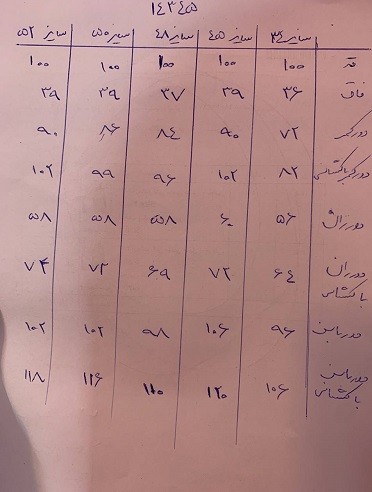 ۱۴۳۴۵
سایز ۳۴ سایز ۴۵ سایز ۴۸ سایز ۵۰ سایز ۵۲
قد ۱۰۰ ۱۰۰ ۱۰۰ ۱۰۰ ۱۰۰
فاق ۳۶ ۳۹ ۳۷ ۳۹ ۳۹
دورکمر ۷۲ ۹۰ ۸۴ ۸۶ ۹۰
دورکمر باکشسانی ۸۲ ۱۰۲ ۹۶ ۹۹ ۱۰۲
دور زانو ۵۶ ۶۰ ۵۸ ۵۸ ۵۸
دور ران ۶۴ ۷۲ ۶۹ ۷۲ ۷۴
با کشسانی
دور باسن ۹۶ ۱۰۶ ۹۸ ۱۰۲ ۱۰۲
دور باسن ۱۰۶ ۱۲۰ ۱۱۰ ۱۱۶ ۱۱۸
با کشسانی